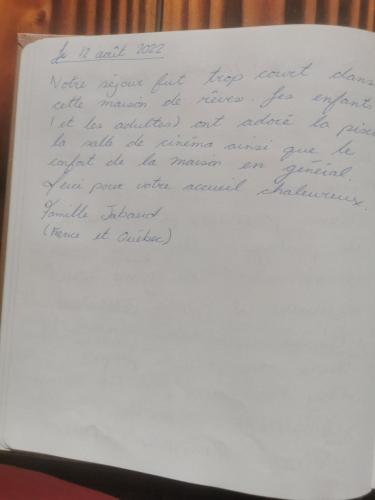 Le 12 août 2022
Notre séjour fut trop court dans
cette maison de rêves. Les enfants
(et les adultes) ont adoré la pisc
la salle de cinéma ainsi que le
confort de la maison en général.
Merci pour votre accueil chaleureux.
Famille Jabaud
(France et Québec)